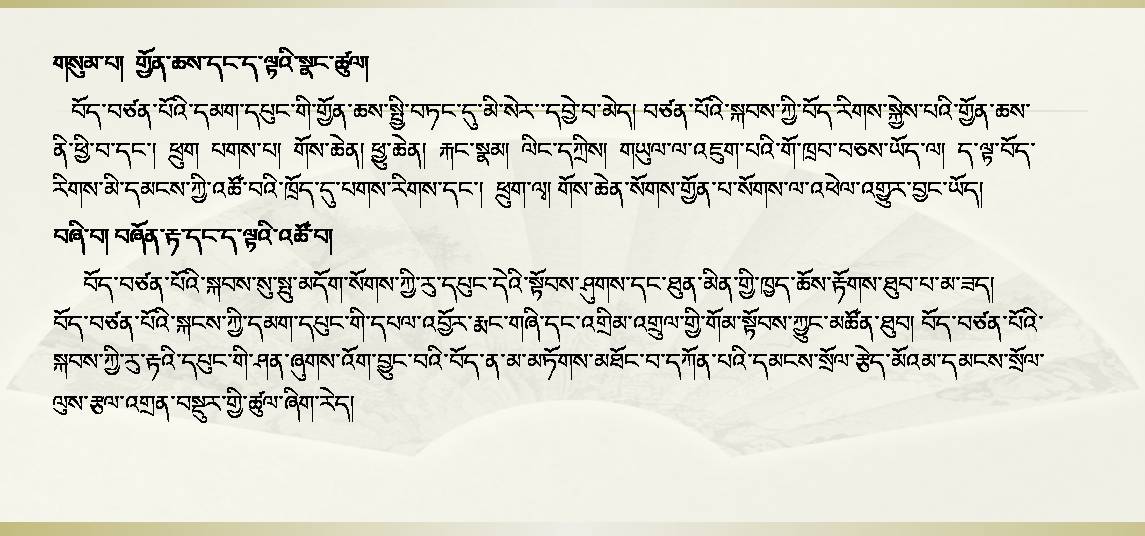 གསུམ་པ། གྱོན་ཆས་དང་ད་ལྟའི་སྣང་ཚུལ།
བོད་བཙན་པོའི་དམག་དཔུང་གི་གྱོན་ཆས་སྤྱི་བཏང་དུ་མི་སེར་་དབྱེ་བ་མེད། བཙན་པོའི་སྐབས་ཀྱི་བོད་རིགས་སྐྱེས་པའི་གྱོན་ཆས་
ནི་ཕྱི་བ་དང་། ཕྲུག པགས་པ། གོས་ཆེན། ཕྱུ་ཆེན། རྐང་སྣམ། ལིང་དཀྲིས། གཡུལ་ལ་འཇུག་པའི་གོ་ཁྲབ་བཅས་ཡོད་ལ། ད་ལྟ་བོད་
རིགས་མི་དམངས་ཀྱི་འཚོ་བའི་ཁྲོད་དུ་པགས་རིགས་དང་། ཕྲུག་ལྭ། གོས་ཆེན་སོགས་གྱོན་པ་སོགས་ལ་འཕེལ་འགྱུར་བྱང་ཡོད།
བཞི་བ། བཞོན་རྟ་དང་ད་ལྟའི་འཚོ་བ།
བོད་བཙན་པོའི་སྐབས་སུ་སྤུ་མདོག་སོགས་ཀྱི་རུ་དཔུང་དེའི་སྟོབས་ཤུགས་དང་ཐུན་མིན་གྱི་ཁྱད་ཆོས་རྟོགས་ཐུབ་པ་མ་ཟད།
བོད་བཙན་པོའི་སྐངས་ཀྱི་དམག་དཔུང་གི་དཔལ་འབྱོར་རྨང་གཞི་དང་འགྲིམ་འགྲུལ་གྱི་གོམ་སྟོབས་ཀྱུང་མཚོན་ཐུབ། བོད་བཙན་པོའི་
སྐབས་ཀྱི་རུ་རྟའི་དཔུང་གི་ཤན་ཞུགས་འོག་བྱུང་བའི་བོད་ན་མ་མཏོགས་མཐོང་བ་དཀོན་པའི་དམངས་སྲོལ་རྩེད་མོའམ་དམངས་སྲོལ་
ལུས་རྩལ་འགྲན་བསྡུར་གྱི་ཚུལ་ཞིག་རེད།